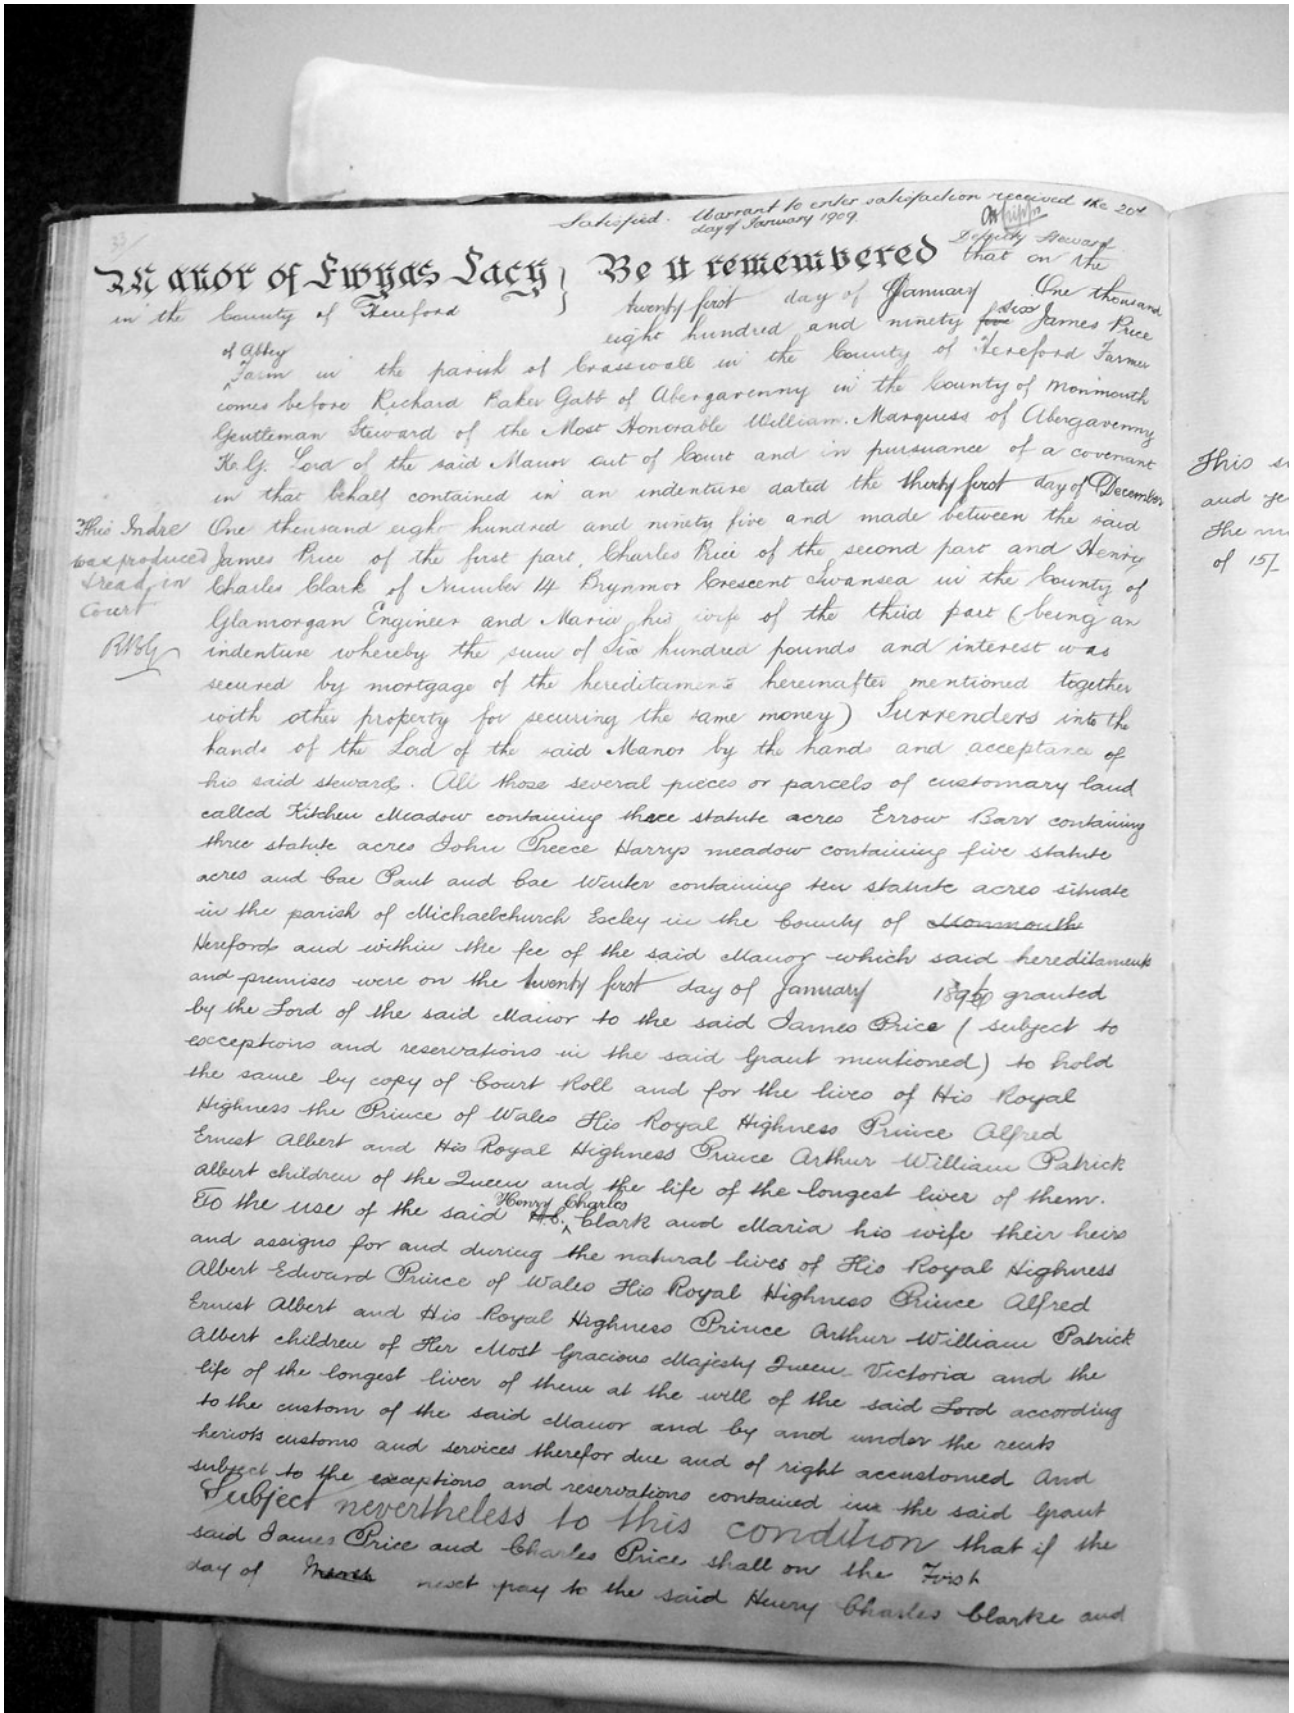 33/
Satisfied. Warrant to enter satisfaction received the 20th
day of January 1909.
Deputy Steward
Manor of Ewyas Lacy } Be it remembered that on the
in the County of Hereford twenty first day of January One thousand
eight hundred and ninety five six James Price
of Abbey
Farm in the parish of Crasswall in the County of Hereford Farmer
comes before Richard Baker Gabb of Abergavenny in the County of Monmouth
Gentleman Steward of the Most Honorable William Marquess of Abergavenny
K.G. Lord of the said Manor out of Court and in pursuance of a covenant
in that behalf contained in an indenture dated the thirty first day of December
One thousand eight hundred and ninety five and made between the said
James Price of the first part, Charles Price of the second part and Henry
Charles Clark of Number 14 Brynmor Crescent Swansea in the County of
Glamorgan Engineer and Maria his wife of the third part (being an
indenture whereby the sum of Six hundred pounds and interest was
secured by mortgage of the hereditaments hereinafter mentioned together
with other property for securing the same money) Surrenders into the
hands of the Lord of the said Manor by the hands and acceptance of
his said steward. All those several pieces or parcels of customary land
called Kitchen Meadow containing three statute acres Errow Barr containing
three statute acres John Preece Harrys meadow containing five statute
acres and Cae Pant and Cae Winter containing ten statute acres situate
in the parish of Michaelchurch Escley in the County of Monmouth
Hereford and within the fee of the said Manor which said hereditaments
and premises were on the twenty first day of January 1896 granted
by the Lord of the said Manor to the said James Price (subject to
exceptions and reservations in the said Grant mentioned) to hold
the same by copy of Court Roll and for the lives of His Royal
Highness the Prince of Wales His Royal Highness Prince Alfred
Ernest Albert and His Royal Highness Prince Arthur William Patrick
Albert children of the Queen and the life of the longest liver of them.
To the use of the said H.C. Henry Charles Clark and Maria his wife their heirs
and assigns for and during the natural lives of His Royal Highness
Albert Edward Prince of Wales His Royal Highness Prince Alfred
Ernest Albert and His Royal Highness Prince Arthur William Patrick
Albert children of Her Most Gracious Majesty Queen Victoria and the
life of the longest liver of them at the will of the said Lord according
to the custom of the said Manor and by and under the rents
heriots customs and services therefor due and of right accustomed And
subject to the exceptions and reservations contained in the said Grant
Subject nevertheless to this condition that if the
said James Price and Charles Price shall on the First
day of March next pay to the said Henry Charles Clarke and
This Indre
was produced
& read in
Court
RBG
This
and
The
of 15/-